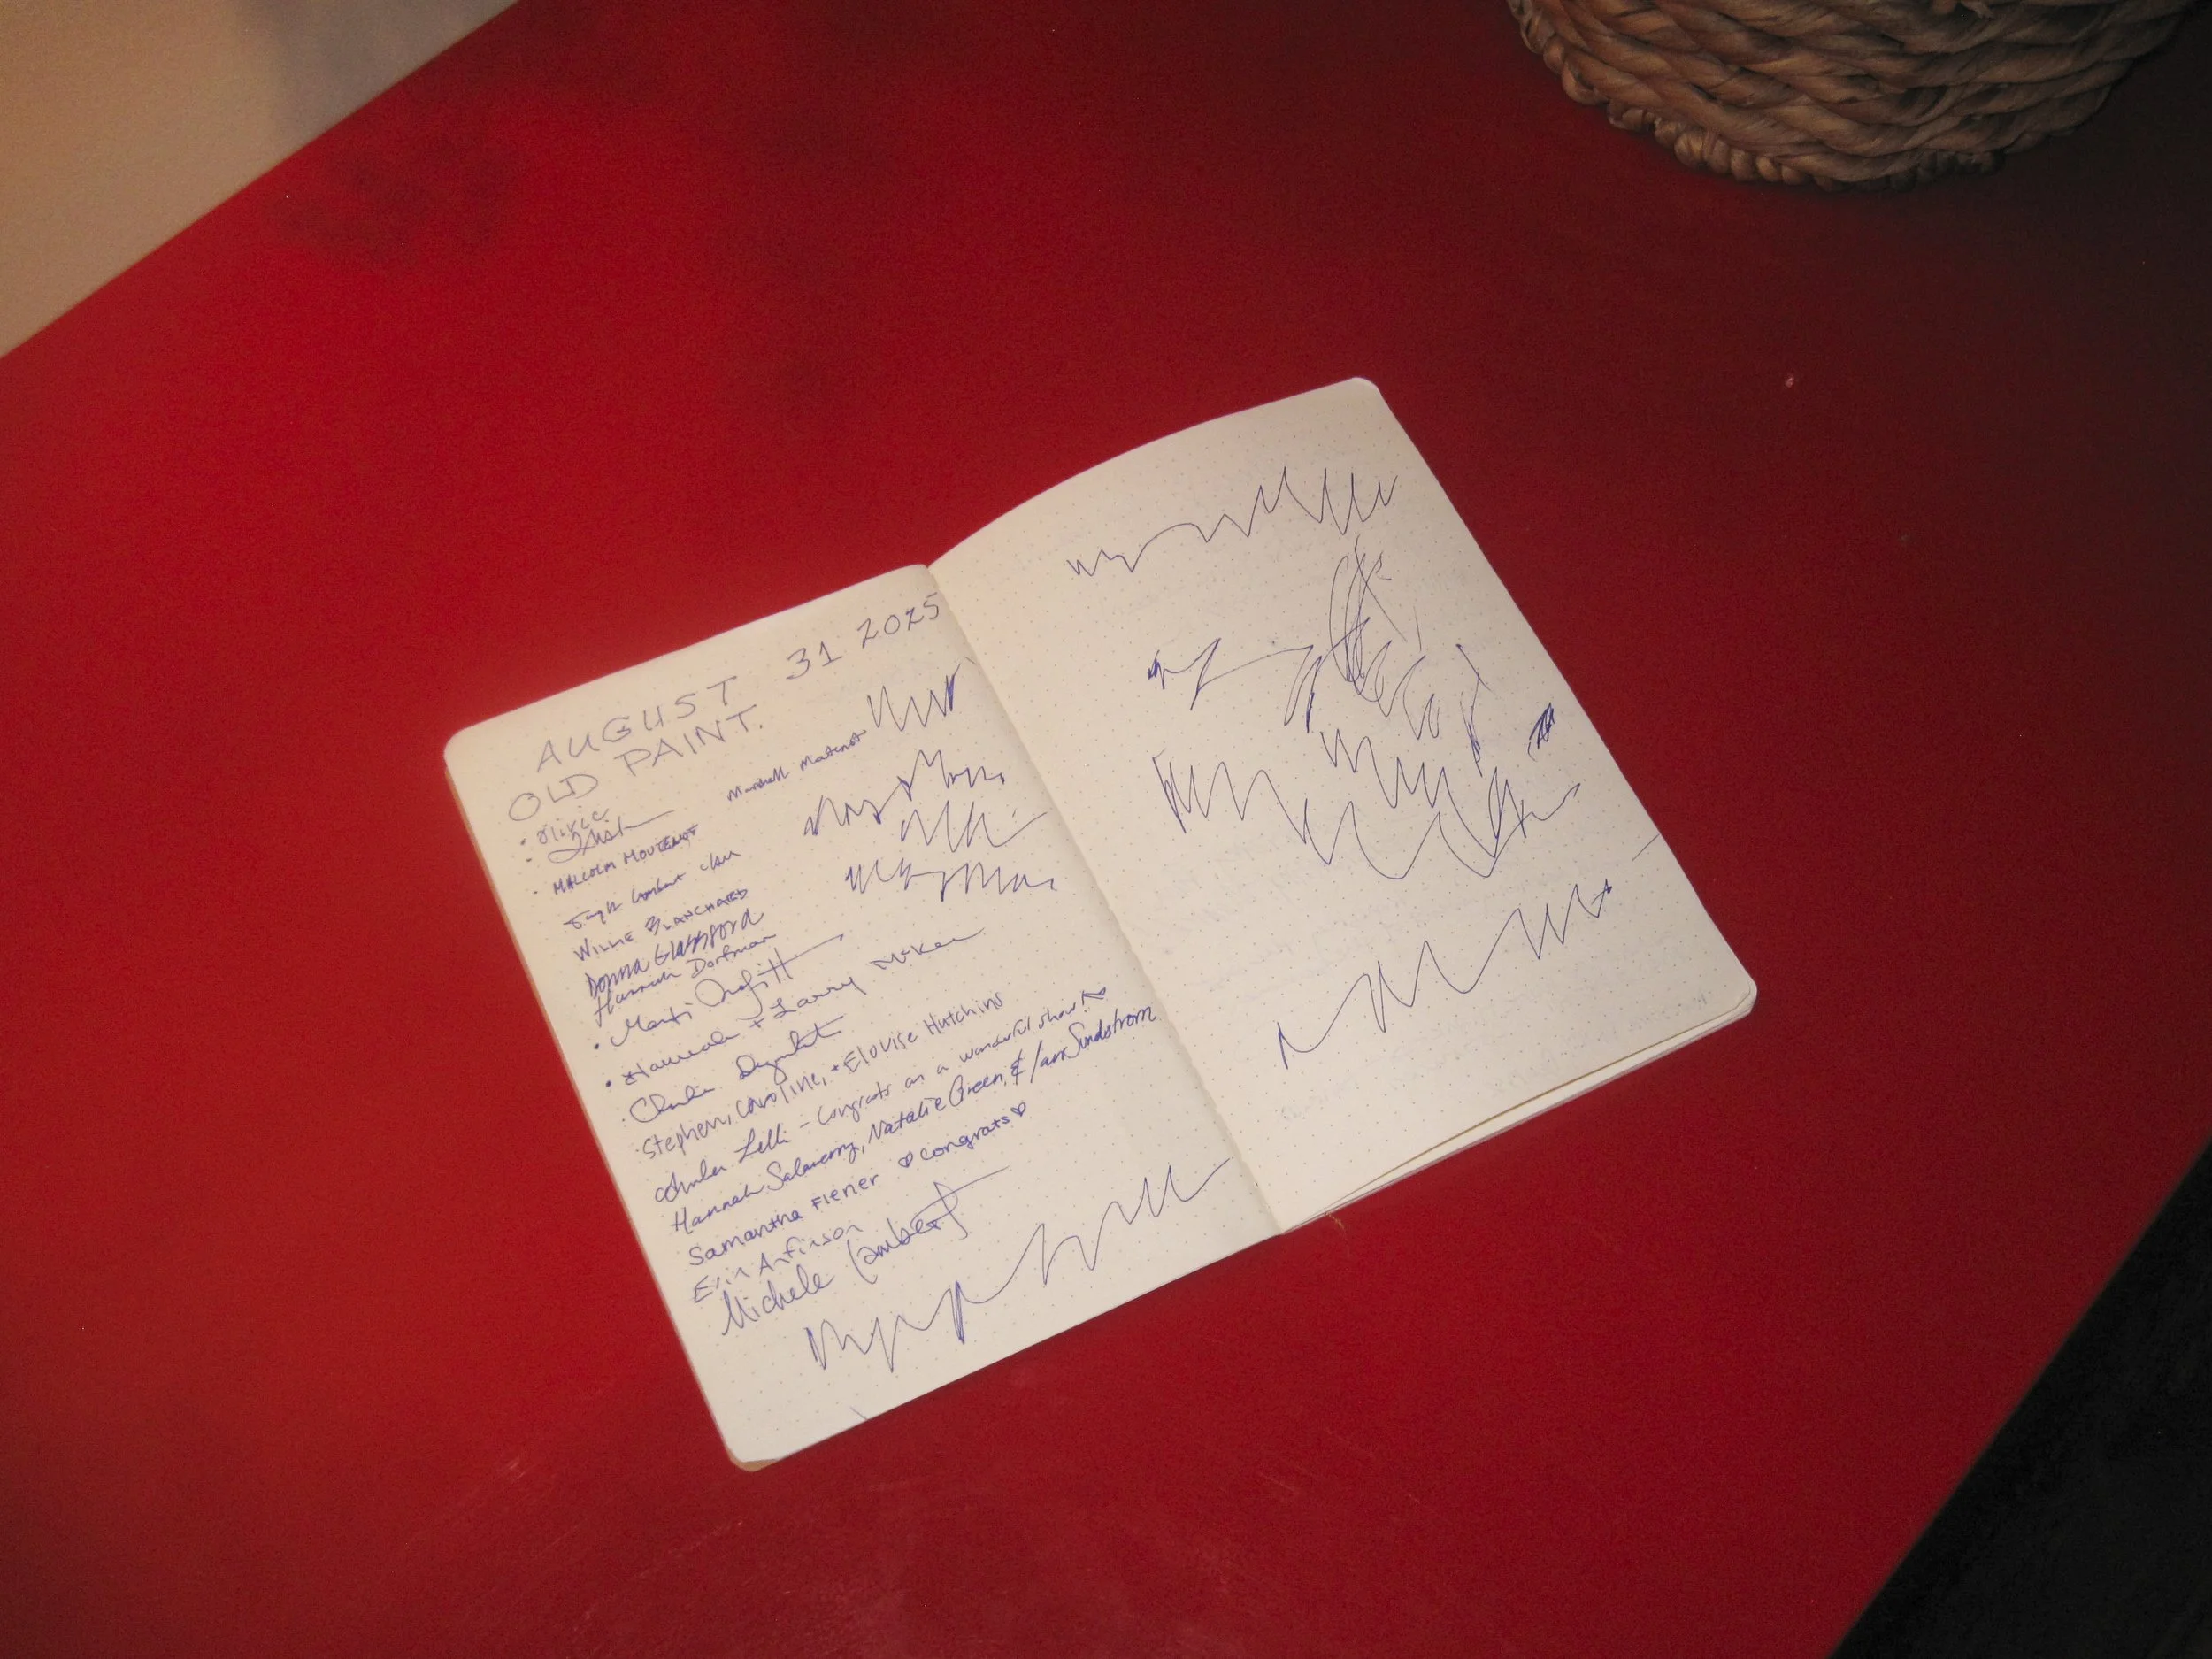 AUGUST 31 2025
OLD PAINT.
· Olivia
· MALCOLM MOUTENOT
Marshall Moutenot
WILLIE BLANCHARD
Donna Glassford
Hannah Dorfman
· Marti Profitt
· Hannah + Larry McKee
· Stephen, Caroline, + Elouise Hutchins
Lelli - Congrats on a wonderful show! ♡
Hannah Salaverry, Natalie Green, & Ian Sundstrom
Samantha Fiener ♡ congrats ♡
Erin Anfinson
Michele Lambert